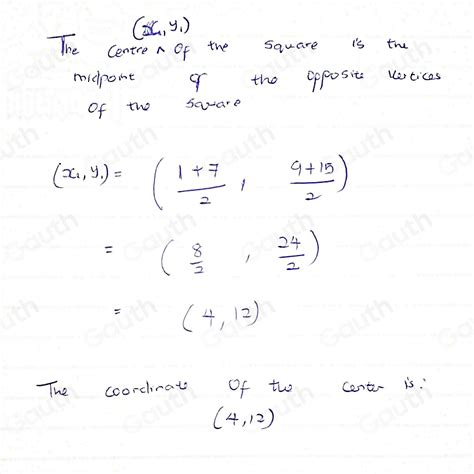 (x₁, y₁)
The centre ^ of the square is the
midpoint of the opposite vertices
of the square
(x₁, y₁) = ( 1 + 7 / 2 , 9 + 15 / 2 )
= ( 8 / 2 , 24 / 2 )
= (4, 12)
The coordinate of the center is:
(4, 12)